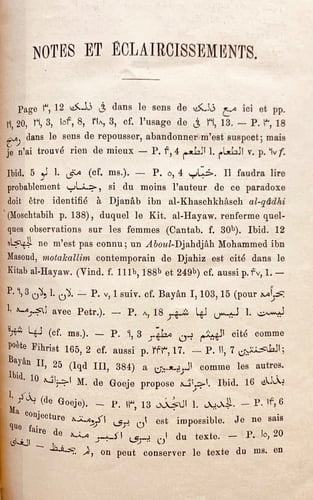 NOTES ET ÉCLAIRCISSEMENTS.
Page ٣, 12 في ذلك dans le sens de مع ذلك ici et pp.
١٦, 20, ٢٦, 3, ١٥٣, 8, ٢١٨, 3, cf. l'usage de في ٢٦, 13. — P. ٣, 18
dans le sens de repousser, abandonner m'est suspect; mais
je n'ai trouvé rien de mieux — P. ٤, 4 الطعم l. العظام v. p.
Ibid. 5 لو l. متى (cf. ms.). — P. ٥, 4 خبّاب. Il faudra lire
probablement جناب, si du moins l'auteur de ce paradoxe
doit être identifié à Djanâb ibn al-Khaschkhâsch al-qâdhi
(Moschtabih p. 138), duquel le Kit. al-Hayaw. renferme quel-
ques observations sur les femmes (Cantab. f. 30ᵇ). Ibid. 12
الهجهاه ne m'est pas connu; un Aboul-Djahdjâh Mohammed ibn
Masoud, motakallim contemporain de Djahiz est cité dans le
Kitab al-Hayaw. (Vind. f. 111ᵇ, 188ᵇ et 249ᵇ) cf. aussi p. ٢٧, 1. —
P. ٦, 3 ولان l. لان. — P. ٧, 1 suiv. cf. Bayân I, 103, 15 (pour
avec Petr.). — P. ٨, 18 ليس لها شهرة l. ليست
لها شهرة (cf. ms.). — P. ٩, 3 الهيثم بن مطهّر cité comme
poëte Fihrist 165, 2 cf. aussi p. ٢٤٣, 17. — P. ١١, 7 الطحنتين;
Bayân II, 25 (Iqd III, 384) a الريعين comme les autres.
Ibid. 10 اجزائه M. de Goeje propose اجزائه. Ibid. 16 بذلك
l. بذكر (de Goeje). — P. ١٣, 13 التجدّد l. الجديد. — P. ١٤, 6
Ma conjecture ان يرى اكرومته est impossible. Je ne sais
que faire de ان يرى اكبر منه du texte. — P. ١٥, 20
on peut conserver le texte du ms. en